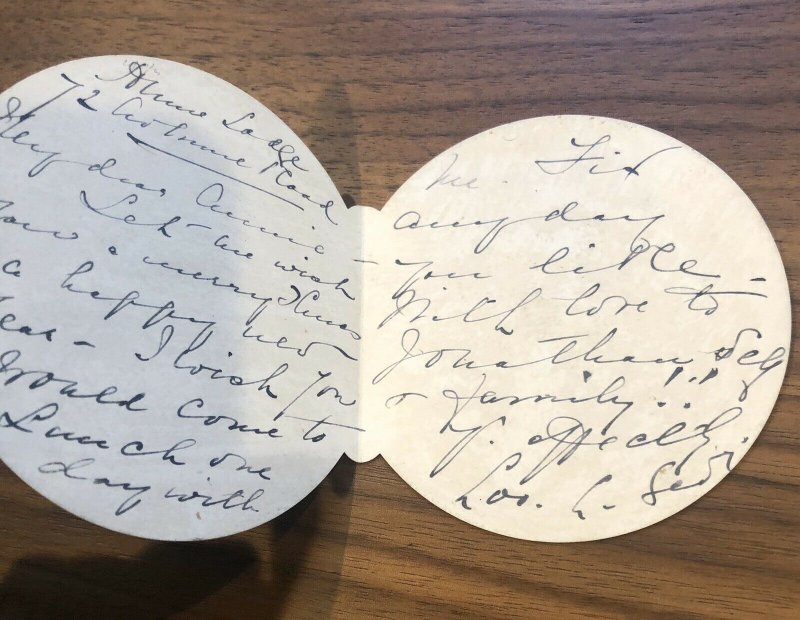 72
My dear Annie -
Let me wish
you a merry Xmas
a happy new
Year - I wish you
would come to
Lunch one
day with
me. Fix
any day
you like -
With love to
Jonathan
& family!!
Y. affectly